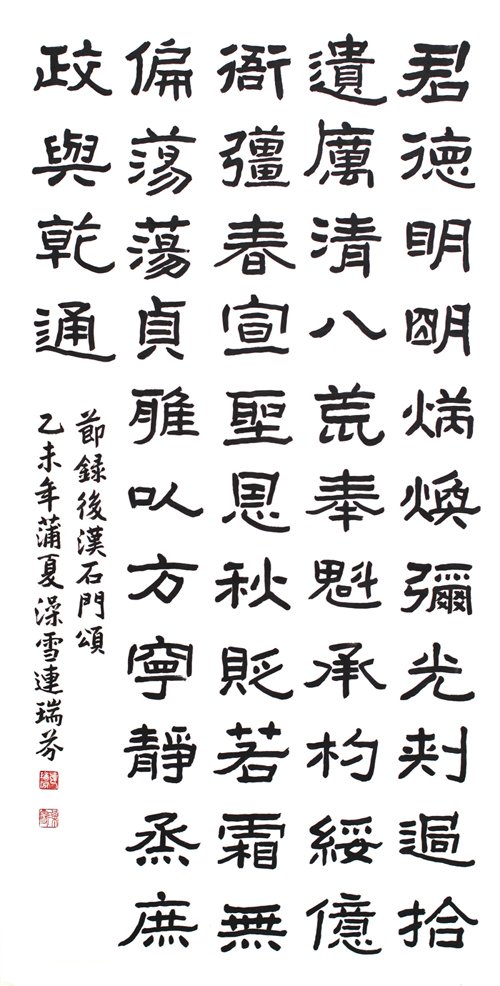 君德眀朙炳煥彌光刾過拾
遺厲清八荒奉魁承杓綏億
衙彊春宣聖恩秋貶若霜無
偏蕩蕩貞雅以方寧靜烝庶
政與乾通
節録後漢石門頌
乙未年蒲夏澡雪連瑞芬